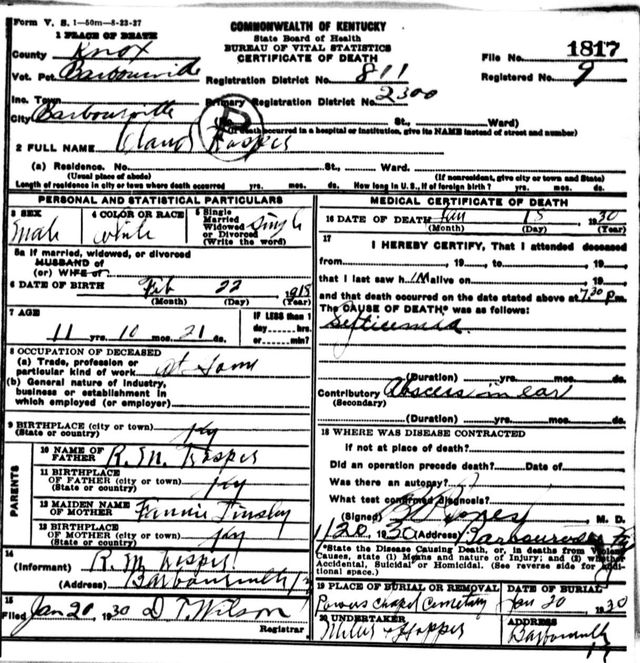 Form V. S. 1—50m—8-23-27
COMMONWEALTH OF KENTUCKY
State Board of Health
BUREAU OF VITAL STATISTICS
CERTIFICATE OF DEATH
1 PLACE OF DEATH
County Knox
File No. 1817
Vot. Pct. Barbourville
Registration District No. 811
Registered No. 9
Inc. Town
Primary Registration District No. 2300
City Barbourville
St., Ward)
(If death occurred in a hospital or institution, give its NAME instead of street and number)
2 FULL NAME
(a) Residence. No. St., Ward.
(Usual place of abode) (If nonresident, give city or town and State)
Length of residence in city or town where death occurred yrs. mos. ds. How long in U. S., if of foreign birth? yrs. mos. ds.
PERSONAL AND STATISTICAL PARTICULARS
3 SEX Male
4 COLOR OR RACE White
5 Single Married Widowed or Divorced (Write the word) Single
5a If married, widowed, or divorced
HUSBAND of
(or) WIFE of
6 DATE OF BIRTH Feb 22 1918
(Month) (Day) (Year)
7 AGE
IF LESS than 1 day ......hrs. or ......min?
11 yrs. 10 mos. 21 ds.
8 OCCUPATION OF DECEASED
(a) Trade, profession or particular kind of work
(b) General nature of industry, business or establishment in which employed (or employer)
9 BIRTHPLACE (city or town)
(State or country) Ky
PARENTS
10 NAME OF FATHER R. M.
11 BIRTHPLACE OF FATHER (city or town)
(State or country) Ky
12 MAIDEN NAME OF MOTHER Fannie Tinsley
13 BIRTHPLACE OF MOTHER (city or town)
(State or country) Ky
14
(Informant) R. M.
(Address) Barbourville Ky
15
Filed Jan 20, 1930 D T Wilson
Registrar
MEDICAL CERTIFICATE OF DEATH
16 DATE OF DEATH Jan 15 1930
(Month) (Day) (Year)
17
I HEREBY CERTIFY, That I attended deceased
from, 19, to, 19
that I last saw him alive on, 19
and that death occurred on the date stated above at 7:30 pm.
The CAUSE OF DEATH* was as follows:
Septicemia
(Duration) yrs. mos. ds.
Contributory Abscess in ear
(Secondary)
(Duration) yrs. mos. ds.
18 WHERE WAS DISEASE CONTRACTED
if not at place of death?
Did an operation precede death? Date of
Was there an autopsy?
What test confirmed diagnosis?
(Signed) Jones M. D.
1/20, 1930 (Address) Barbourville Ky
*State the Disease Causing Death, or, in deaths from Violent Causes, state (1) Means and nature of Injury; and (2) whether Accidental, Suicidal or Homicidal. (See reverse side for additional space.)
19 PLACE OF BURIAL OR REMOVAL
DATE OF BURIAL
Powers Chapel Cemetery Jan 20 1930
20 UNDERTAKER
ADDRESS
Hopper
Barbourville
Ky